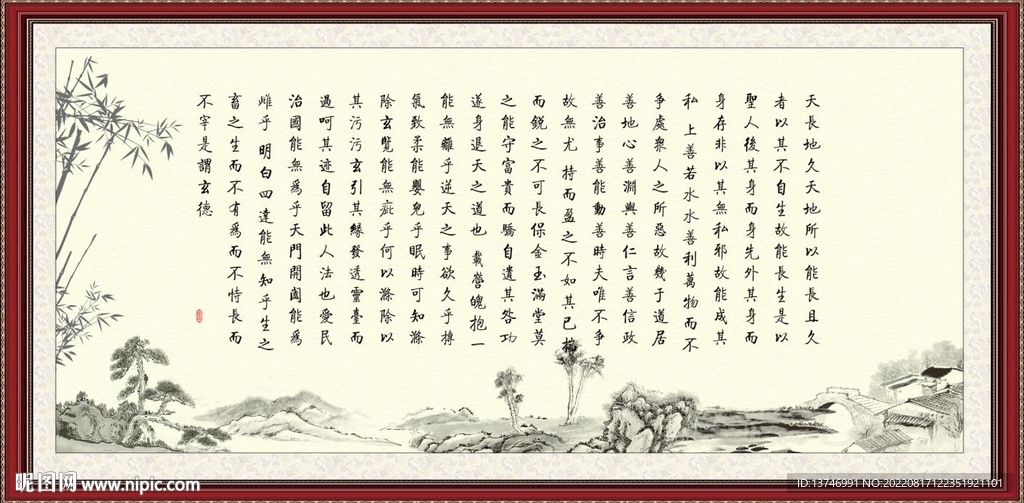 天長地久天地所以能長且久
者以其不自生故能長生是以
聖人後其身而身先外其身而
身存非以其無私邪故能成其
私 上善若水水善利萬物而不
爭處衆人之所惡故幾于道居
善地心善淵與善仁言善信政
善治事善能動善時夫唯不爭
故無尤 持而盈之不如其已揣
而鋭之不可長保金玉滿堂莫
之能守富貴而驕自遺其咎功
遂身退天之道也 載營魄抱一
能無離乎逆天之事欲久乎搏
氣致柔能嬰兒乎眠時可知滌
除玄覽能無疵乎何以滌除以
其污污玄引其緣發透靈臺而
過呵其迹自留此人法也愛民
治國能無爲乎天門開闔能爲
雌乎 明白四達能無知乎生之
畜之生而不有爲而不恃長而
不宰是謂玄德
昵图网 www.nipic.com
ID:13746991 NO:20220817122351921101